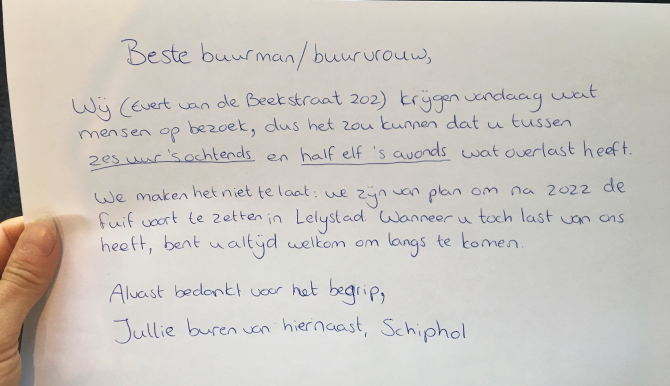 Beste buurman/buurvrouw,
Wij (Evert van de Beekstraat 202) krijgen vandaag wat
mensen op bezoek, dus het zou kunnen dat u tussen
zes uur 's ochtends en half elf 's avonds wat overlast heeft.
We maken het niet te laat: we zijn van plan om na 2022 de
fuif voort te zetten in Lelystad. Wanneer u toch last van ons
heeft, bent u altijd welkom om langs te komen.
Alvast bedankt voor het begrip,
Jullie buren van hiernaast, Schiphol